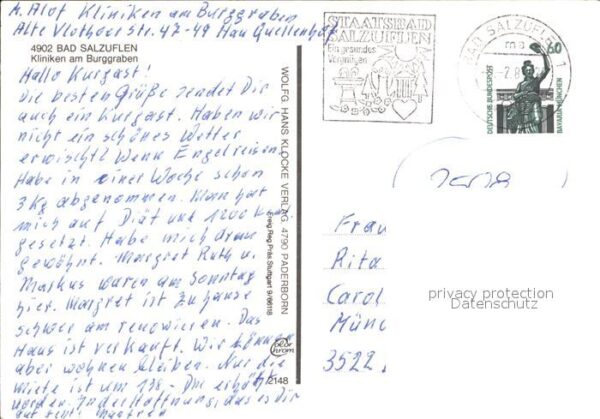 A. Alof Kliniken am Burggraben
Alte Vlothoer Str. 47-49 Hau Quellenhof
4902 BAD SALZUFLEN
Kliniken am Burggraben
Hallo Kurgast!
Die besten Größe sendet Dir
auch ein Kurgast. Haben wir
nicht ein schönes Wetter
erwischt? Wenn Engel reisen.
Habe in einer Woche schon
3 Kg abgenommen. Man hat
mich auf Diät und 1200 Kal
gesetzt. Habe mich dran
gewöhnt. Margret Ruth u.
Markus waren am Sonntag
hier. Margret ist zu hause
schwer am renovieren. Das
Haus ist verkauft. Wir können
aber wohnen bleiben. Nur die
Miete ist um 198,- DM erhöht
worden. In der Hoffnung, das es Dir
gut geht
WOLFG. HANS KLOCKE VERLAG 4790 PADERBORN
Freig. Reg. Präs. Stuttgart 9/66118
color chrom
2148
STAATSBAD
SALZUFLEN
Ein gesundes
Vergnügen
BAD SALZUFLEN 1
mb
-2.8
60
DEUTSCHE BUNDESPOST
BAVARIA MÜNCHEN
Frau
Rita
Carol
Münc
3522
privacy protection
Datenschutz